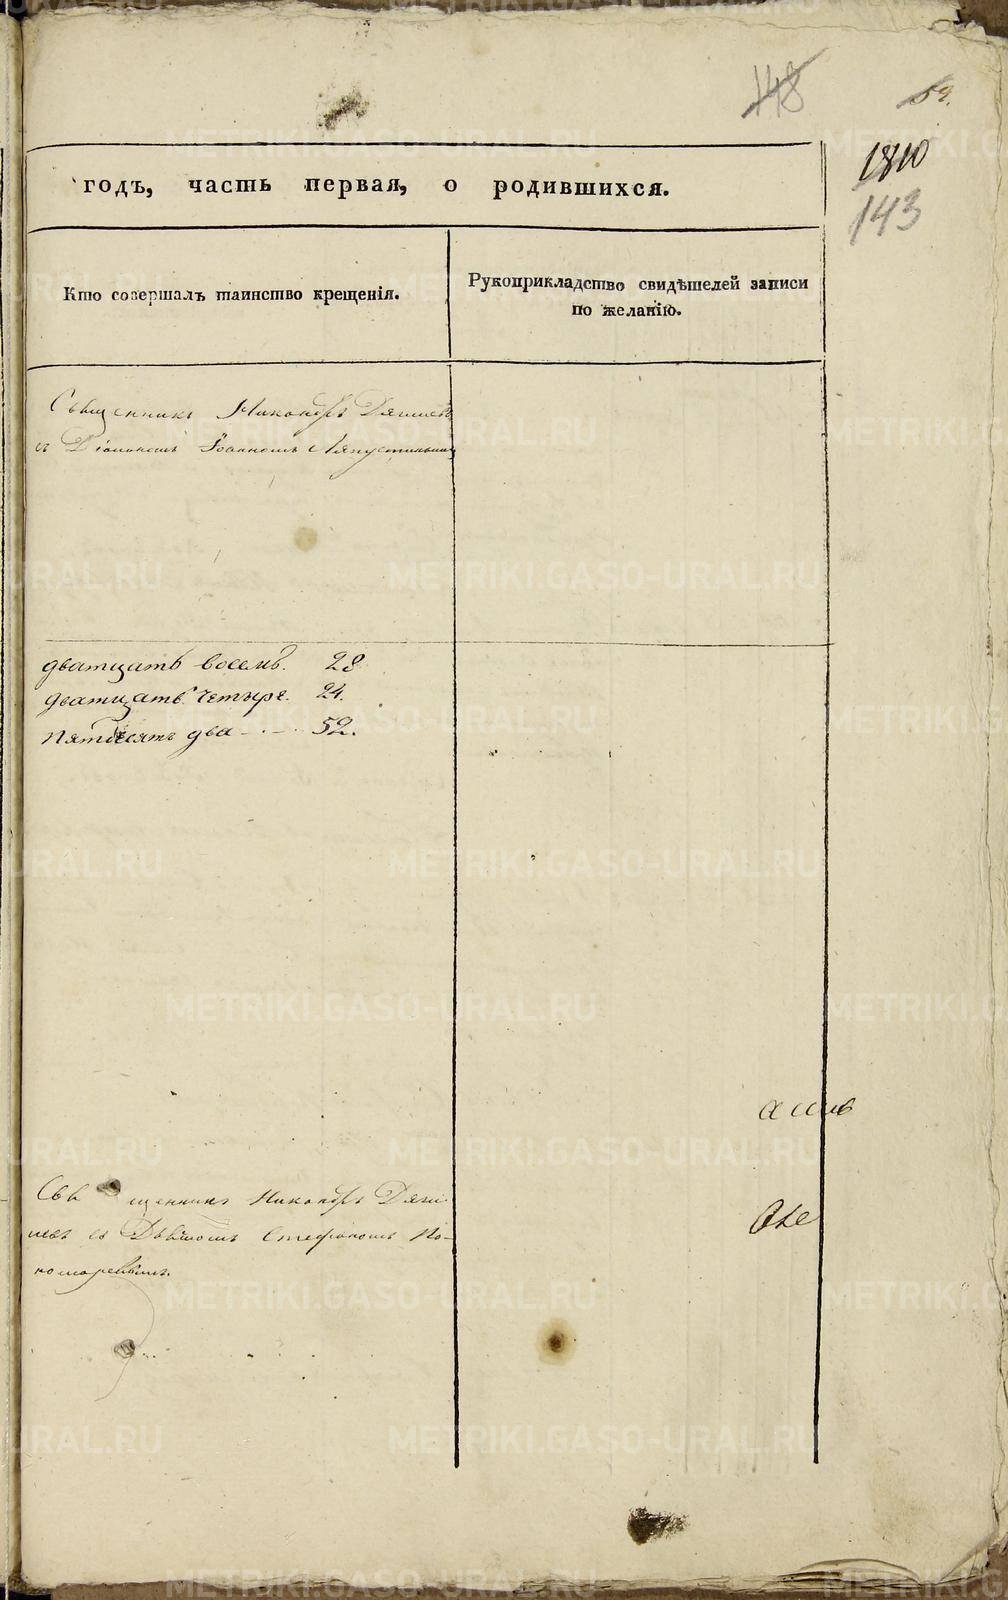 148
52.
1810
143
годъ, часть первая, о родившихся.
Кто совершалъ таинство крещенія.
Рукоприкладство свидѣтелей записи
по желанію.
Священникъ Никаноръ
съ Діакономъ Іоанномъ Ляпустинымъ
дватцать восемь. 28
дватцать четыре. 24.
пятдесятъ два - . - . 52.
Священникъ Никаноръ
съ Стефаномъ По-
номаревымъ.
METRIKI.GASO-URAL.RU